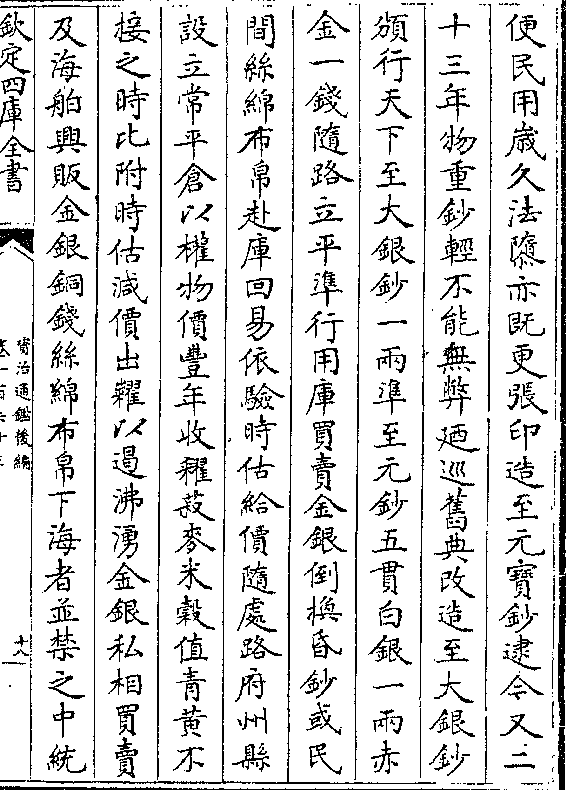 便民用歲久法隳亦既更張印造至元寶鈔逮今又二
十三年物重鈔輕不能無弊廼巡舊典改造至大銀鈔
頒行天下至大銀鈔一兩準至元鈔五貫白銀一兩赤
金一錢隨路立平準行用庫買賣金銀倒換昏鈔或民
間絲綿布帛赴庫回易依驗時估給價隨處路府州縣
設立常平倉以權物價豐年收糴菽麥米穀值青黃不
接之時比附時估減價出糶以遏沸湧金銀私相買賣
及海舶興販金銀銅錢絲綿布帛下海者並禁之中統
欽定四庫全書
資治通鑑後編
十八